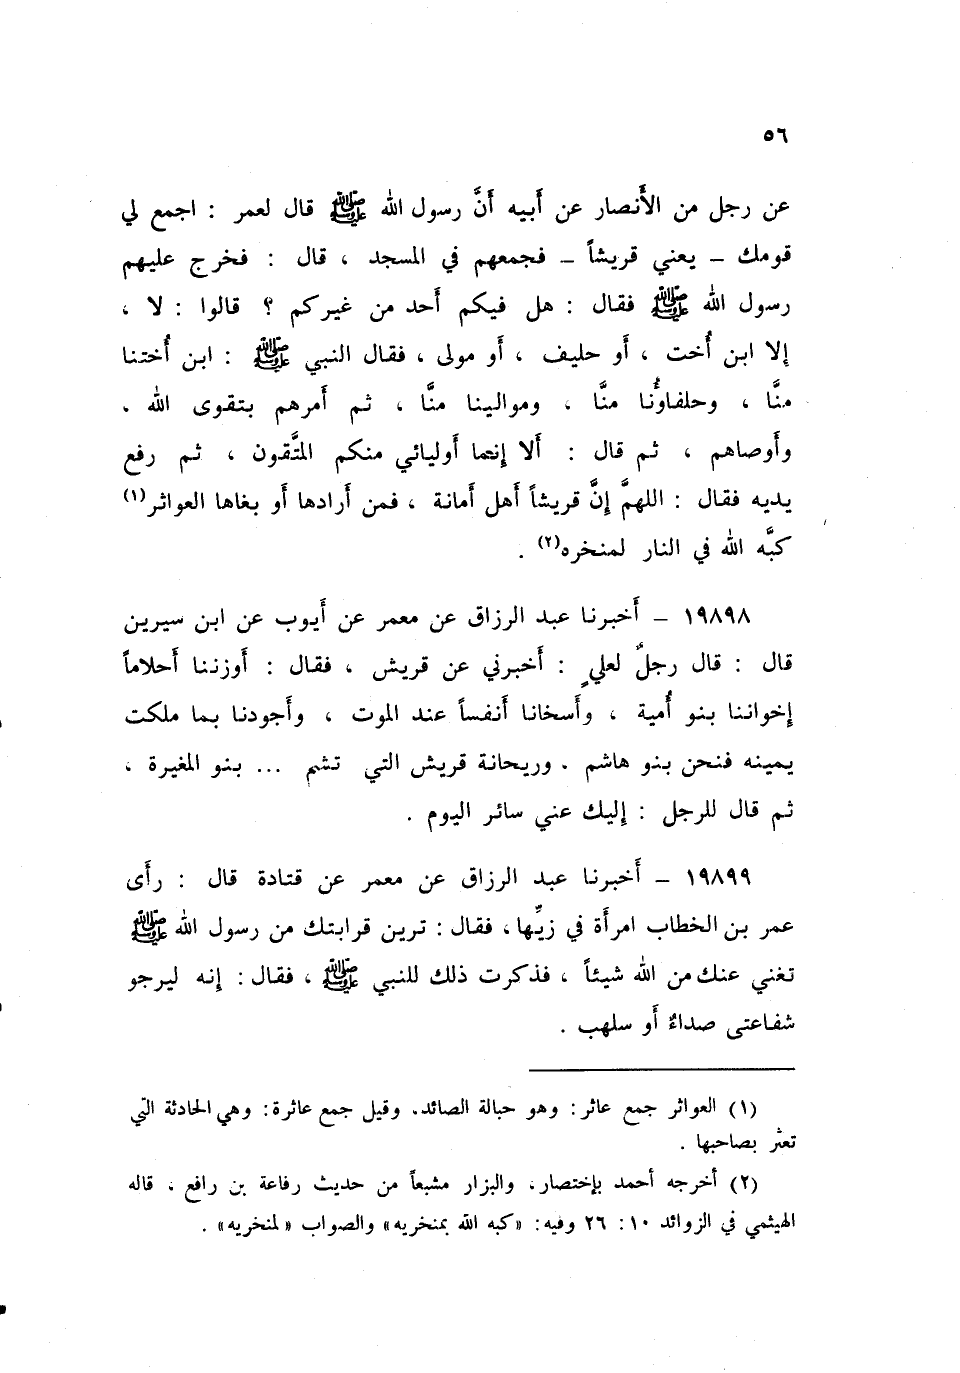 ٥٦
عن رجل من الأَنصار عن أَبيه أَنَّ رسول الله ﷺ قال لعمر : اجمع لي
قومك – يعني قريشاً – فجمعهم في المسجد ، قال : فخرج عليهم
رسول الله ﷺ فقال : هل فيكم أَحد من غيركم ؟ قالوا : لا ،
إلا ابن أُخت ، أَو حليف ، أَو مولى ، فقال النبي ﷺ : ابن أُختنا
منَّا ، وحلفاؤُنا منَّا ، وموالينا منَّا ، ثم أَمرهم بتقوى الله .
وأَوصاهم ، ثم قال : أَلا إِنما أَوليائي منكم المتَّقون ، ثم رفع
يديه فقال : اللهمَّ إِنَّ قريشاً أَهل أَمانة ، فمن أَرادها أَو بغاها العواثر(١)
كبَّه الله في النار لمنخره(٢) .
١٩٨٩٨ – أَخبرنا عبد الرزاق عن معمر عن أَيوب عن ابن سيرين
قال : قال رجلٌ لعليٍ : أَخبرني عن قريش ، فقال : أَوزننا أَحلاماً
إِخواننا بنو أُمية ، وأَسخانا أَنفساً عند الموت ، وأَجودنا بما ملكت
يمينه فنحن بنو هاشم . وريحانة قريش التي تشم ... بنو المغيرة ،
ثم قال للرجل : إِليك عني سائر اليوم .
١٩٨٩٩ – أَخبرنا عبد الرزاق عن معمر عن قتادة قال : رأَى
عمر بن الخطاب امرأَة في زيِّها ، فقال : ترين قرابتك من رسول الله ﷺ
تغني عنك من الله شيئاً ، فذكرت ذلك للنبي ﷺ ، فقال : إِنه ليرجو
شفاعتى صداءٌ أَو سلهب .
(١) العواثر جمع عاثر : وهو حبالة الصائد. وقيل جمع عاثرة : وهي الحادثة التي
تعثر بصاحبها .
(٢) أخرجه أحمد بإختصار، والبزار مشبعاً من حديث رفاعة بن رافع ، قاله
الهيثمي في الزوائد ١٠ : ٢٦ وفيه : «كبه الله بمنخريه» والصواب «لمنخريه» .